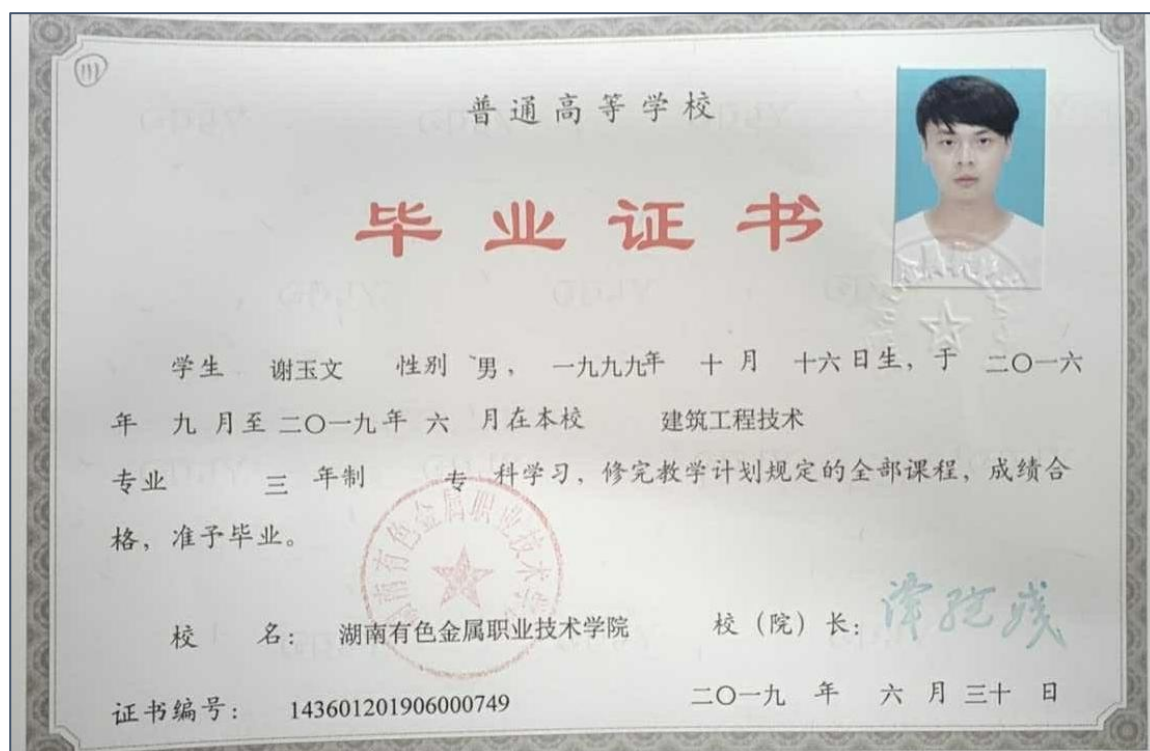 普通高等学校
毕业证书
学生 谢玉文 性别 男， 一九九九年 十 月 十六日生，于 二〇一六
年 九 月至二〇一九年 六 月在本校 建筑工程技术
专业 三 年制 专 科学习，修完教学计划规定的全部课程，成绩合
格，准予毕业。
湖南有色金属职业技术学院
校 名： 湖南有色金属职业技术学院 校（院）长：
证书编号： 143601201906000749 二〇一九 年 六 月 三十 日